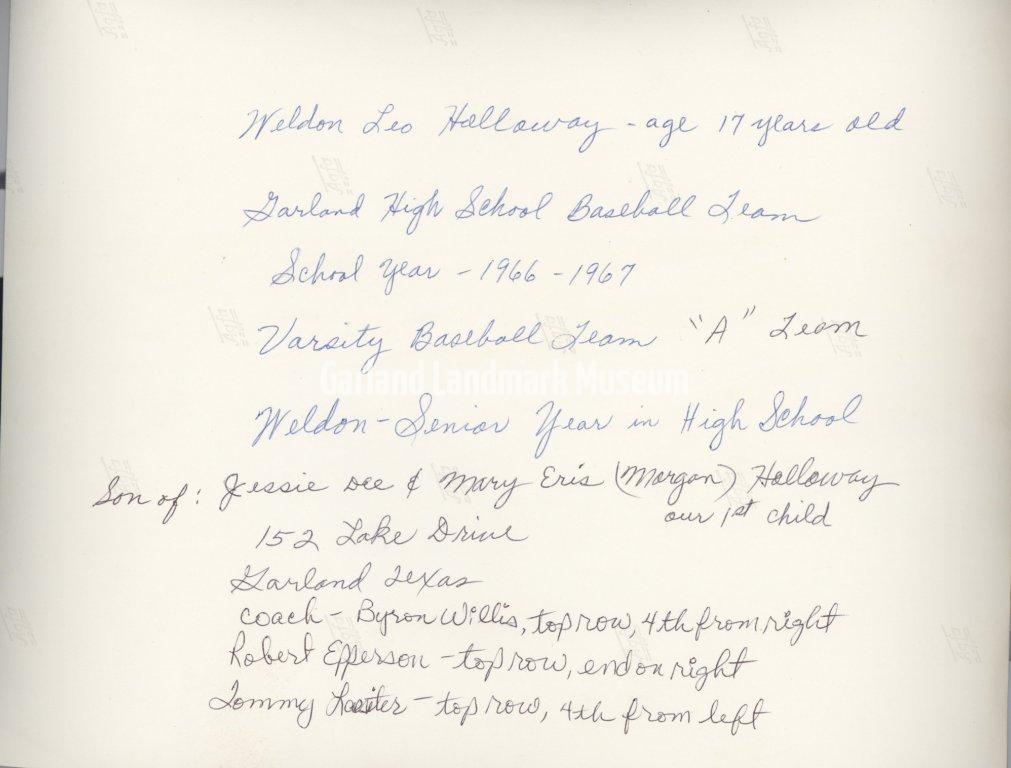 Weldon Leo Holloway - age 17 years old
Garland High School Baseball Team
School Year - 1966 - 1967
Varsity Baseball Team "A" Team
Garland Landmark Museum
Weldon - Senior Year in High School
Son of: Jessie Dee & Mary Eris (Morgan) Holloway
our 1st child
152 Lake Drive
Garland Texas
coach - Byron Willis, top row, 4th from right
Robert Epperson - top row, end on right
Tommy - top row, 4th from left